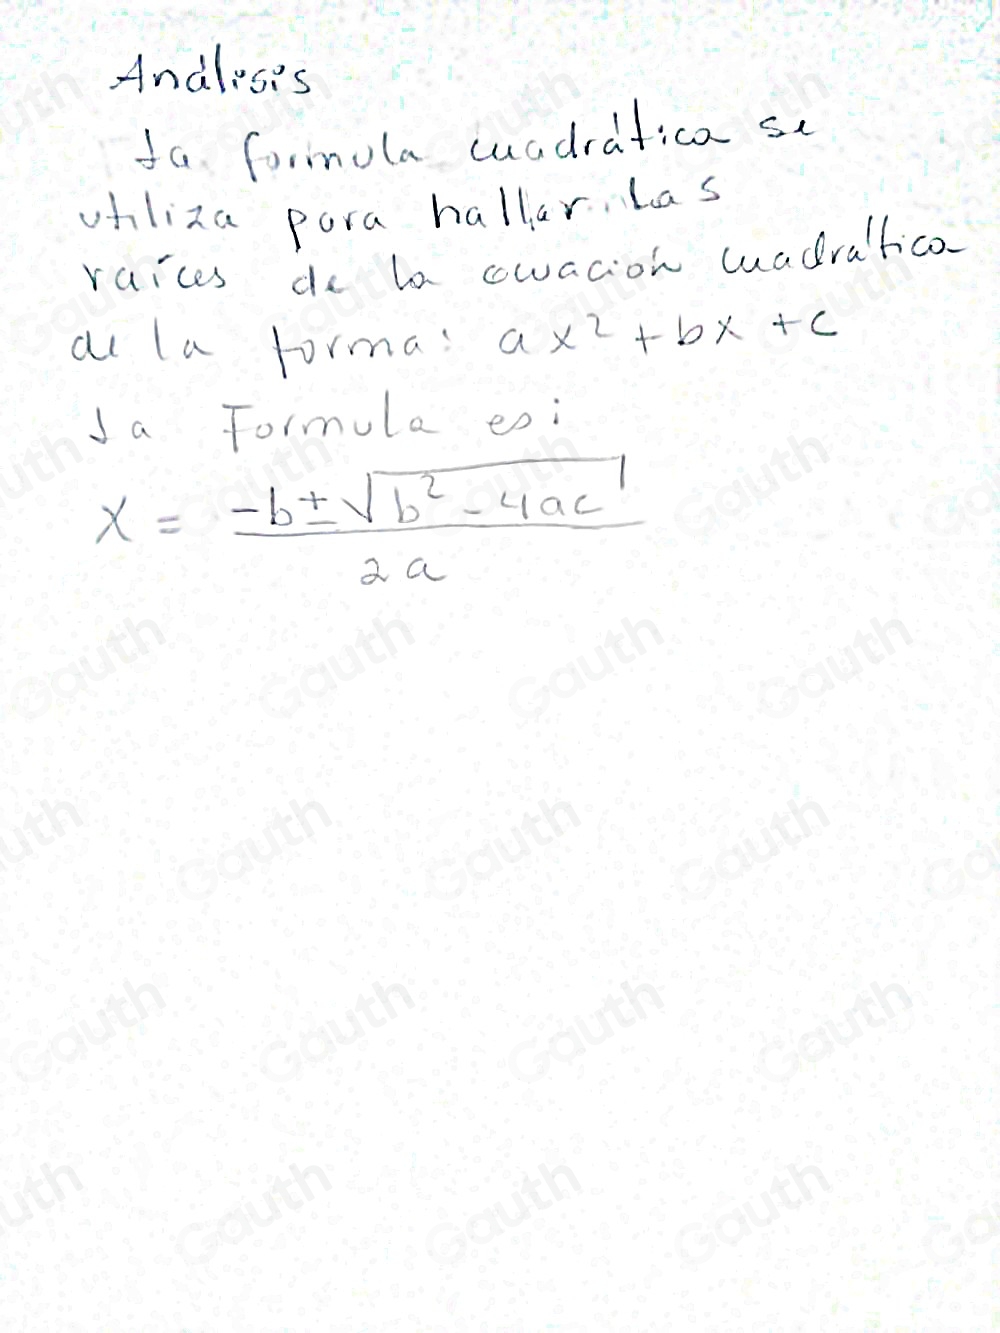 Análisis
La formula cuadrática se
utiliza para hallar las
raíces de la ecuación cuadrática
de la forma: ax² + bx + c
La Formula es:
X = -b ± √b² - 4ac
2a